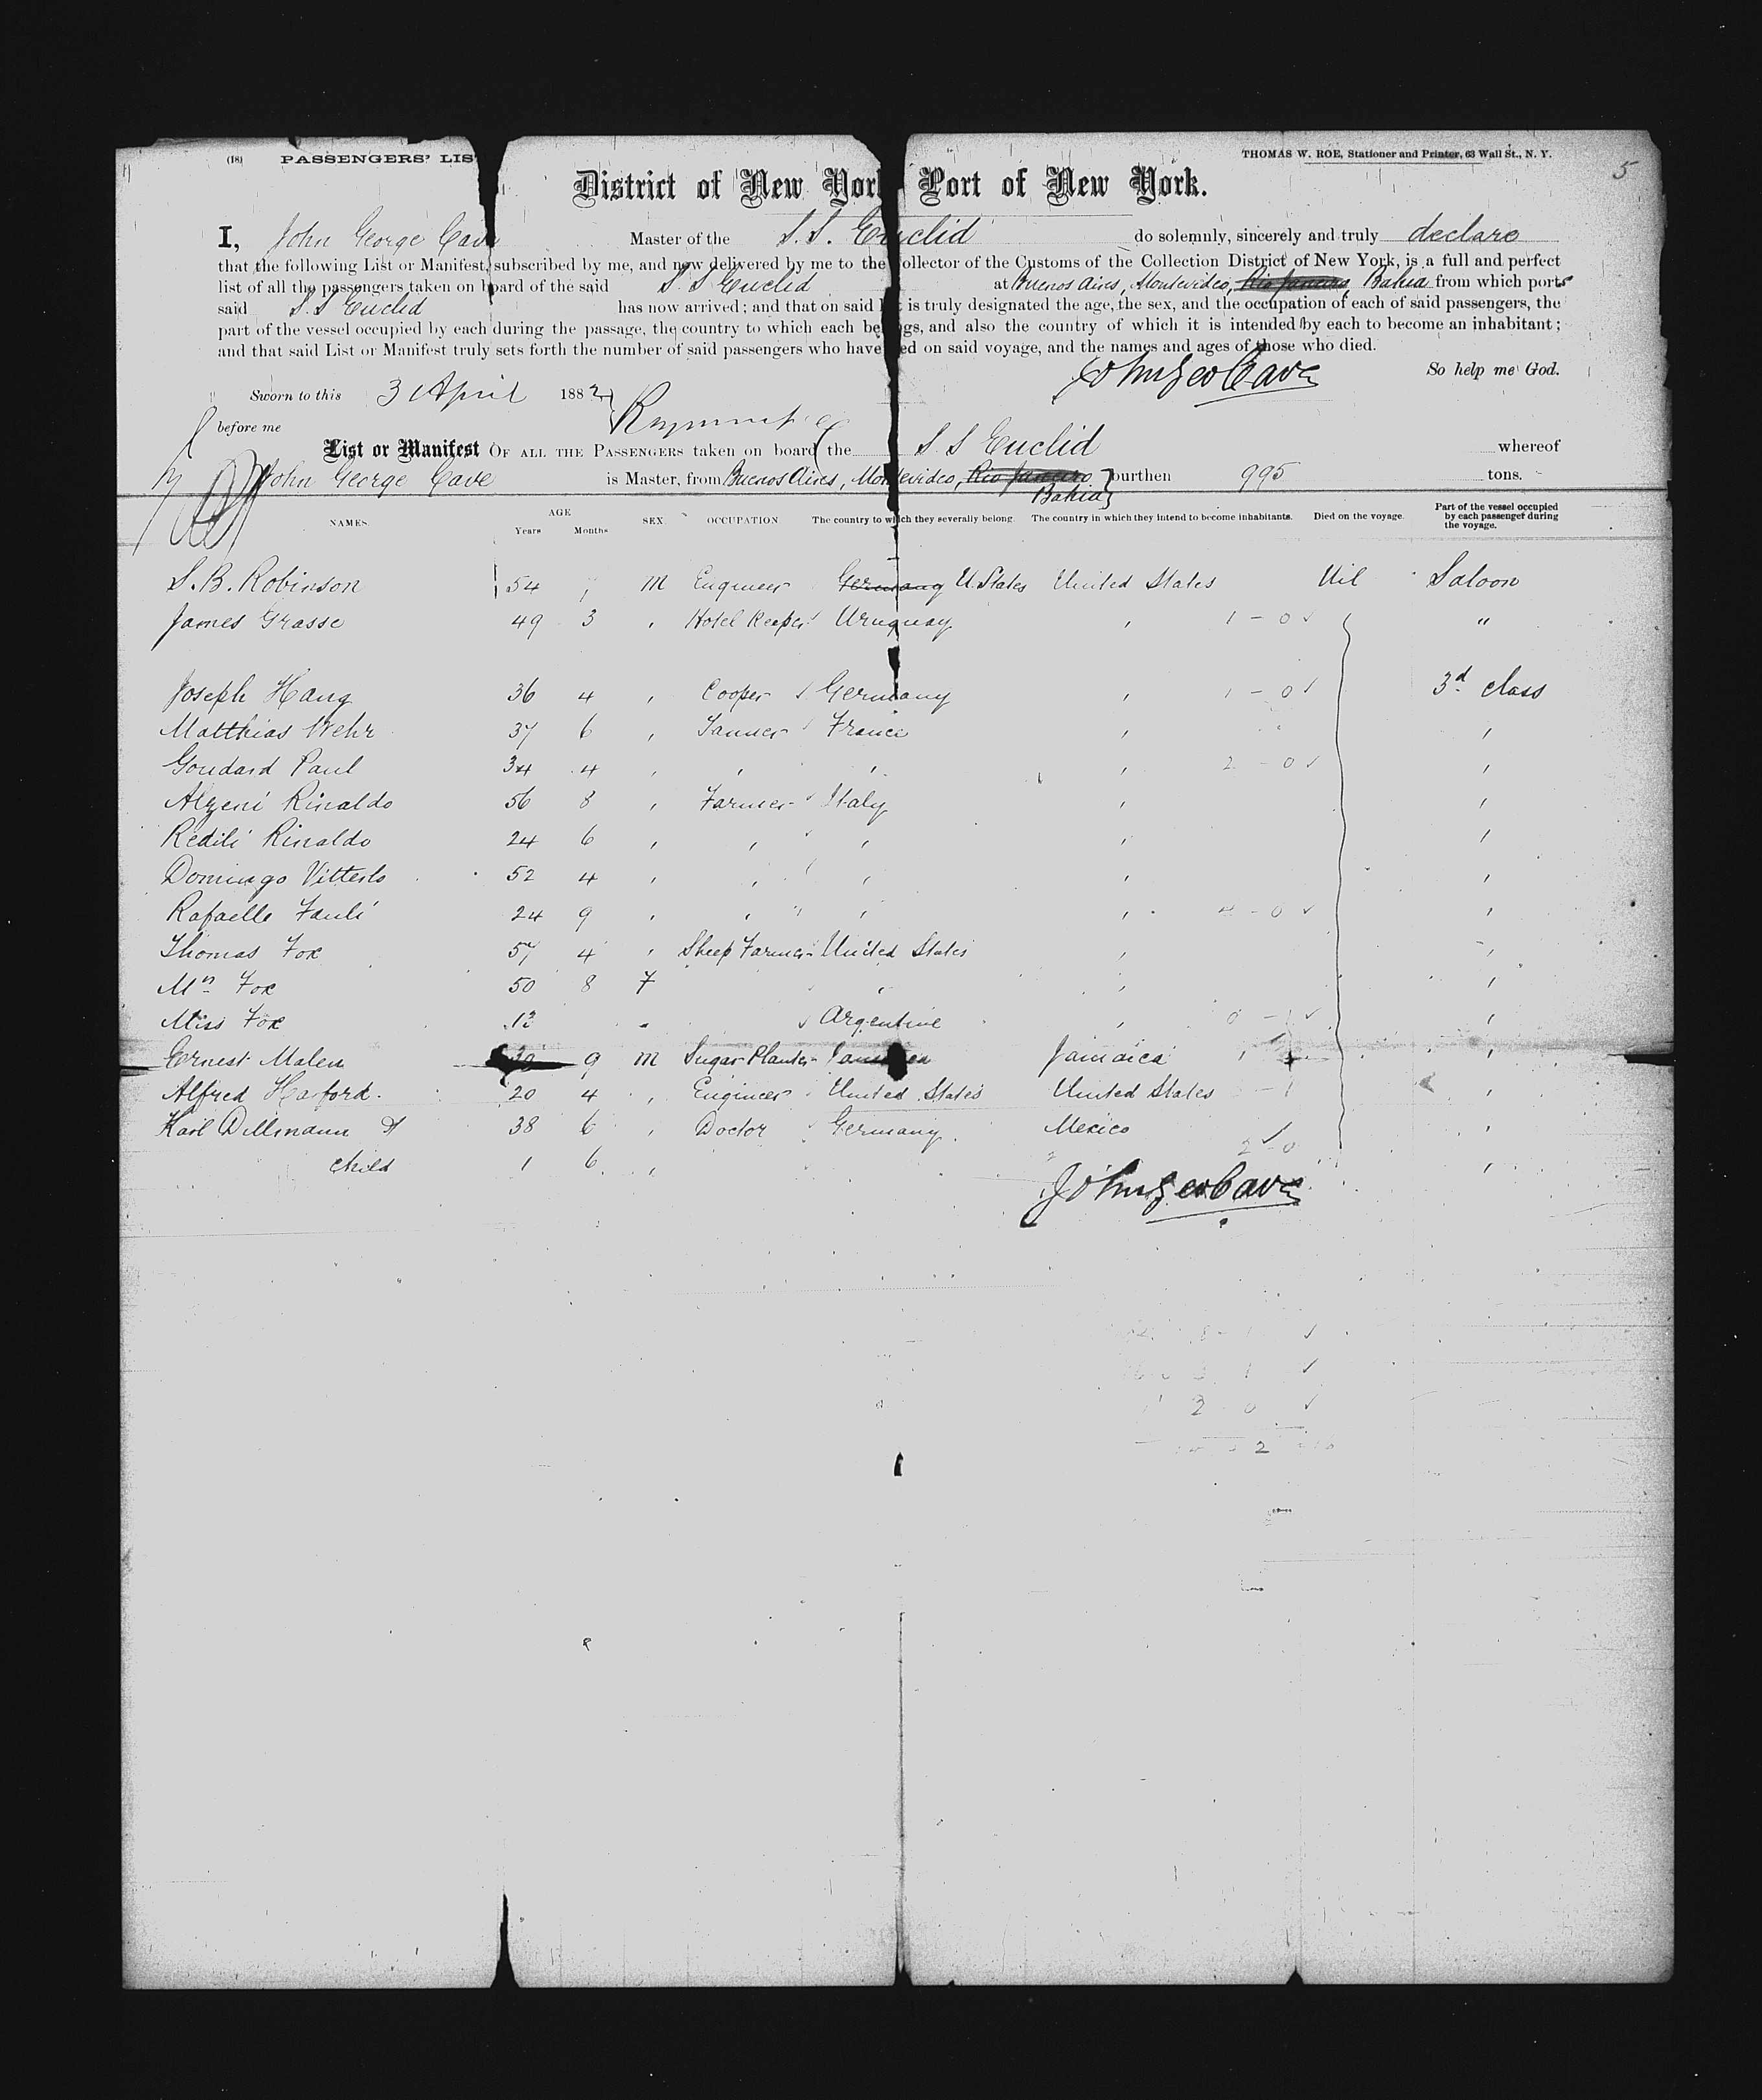 (18) PASSENGERS' LIS
THOMAS W. ROE, Stationer and Printer, 63 Wall St., N. Y.
5
District of New York Port of New York.
I, John George Cave Master of the S.S. Euclid do solemnly, sincerely and truly declare
that the following List or Manifest, subscribed by me, and now delivered by me to the Collector of the Customs of the Collection District of New York, is a full and perfect
list of all the passengers taken on board of the said S.S Euclid at Buenos Aires, Montevideo, Rio Janeiro, Bahia from which ports
said S.S Euclid has now arrived; and that on said list is truly designated the age, the sex, and the occupation of each of said passengers, the
part of the vessel occupied by each during the passage, the country to which each belongs, and also the country of which it is intended by each to become an inhabitant;
and that said List or Manifest truly sets forth the number of said passengers who have died on said voyage, and the names and ages of those who died.
John Geo Cave So help me God.
Sworn to this 3 April 1882
before me
List or Manifest OF ALL THE PASSENGERS taken on board the S S Euclid whereof
John George Cave is Master, from Buenos Aires, Montevideo, Rio Janeiro, Bahia burthen 995 tons.
NAMES. AGE Years Months SEX. OCCUPATION The country to which they severally belong. The country in which they intend to become inhabitants. Died on the voyage. Part of the vessel occupied by each passenger during the voyage.
S. B. Robinson 54 M Engineer Germany U. States United States Nil Saloon
James Grasse 49 3 Hotel Keeper Uruguay 1 - 0 "
Joseph Haug 36 4 Cooper Germany 1 - 0 3d class
Matthias Wehr 37 6 Tanner France
Goudard Paul 34 4 2 - 0
Alzeni Rinaldo 56 8 Farmer Italy
Redili Rinaldo 24 6
Domingo 52 4
Rafaelle Fauli 24 9 4 - 0
Thomas Fox 57 4 Sheep Farmer United States
Mrs Fox 50 8 F
Miss Fox 12 Argentine 0 - 1
Ernest Malen 30 9 M Sugar Planter Jamaica Jamaica
Alfred Harford. 20 4 Engineer United States United States - 1
Karl Dillmann & 38 6 Doctor Germany Mexico
2 - 0
child 1 6
John Geo Cave